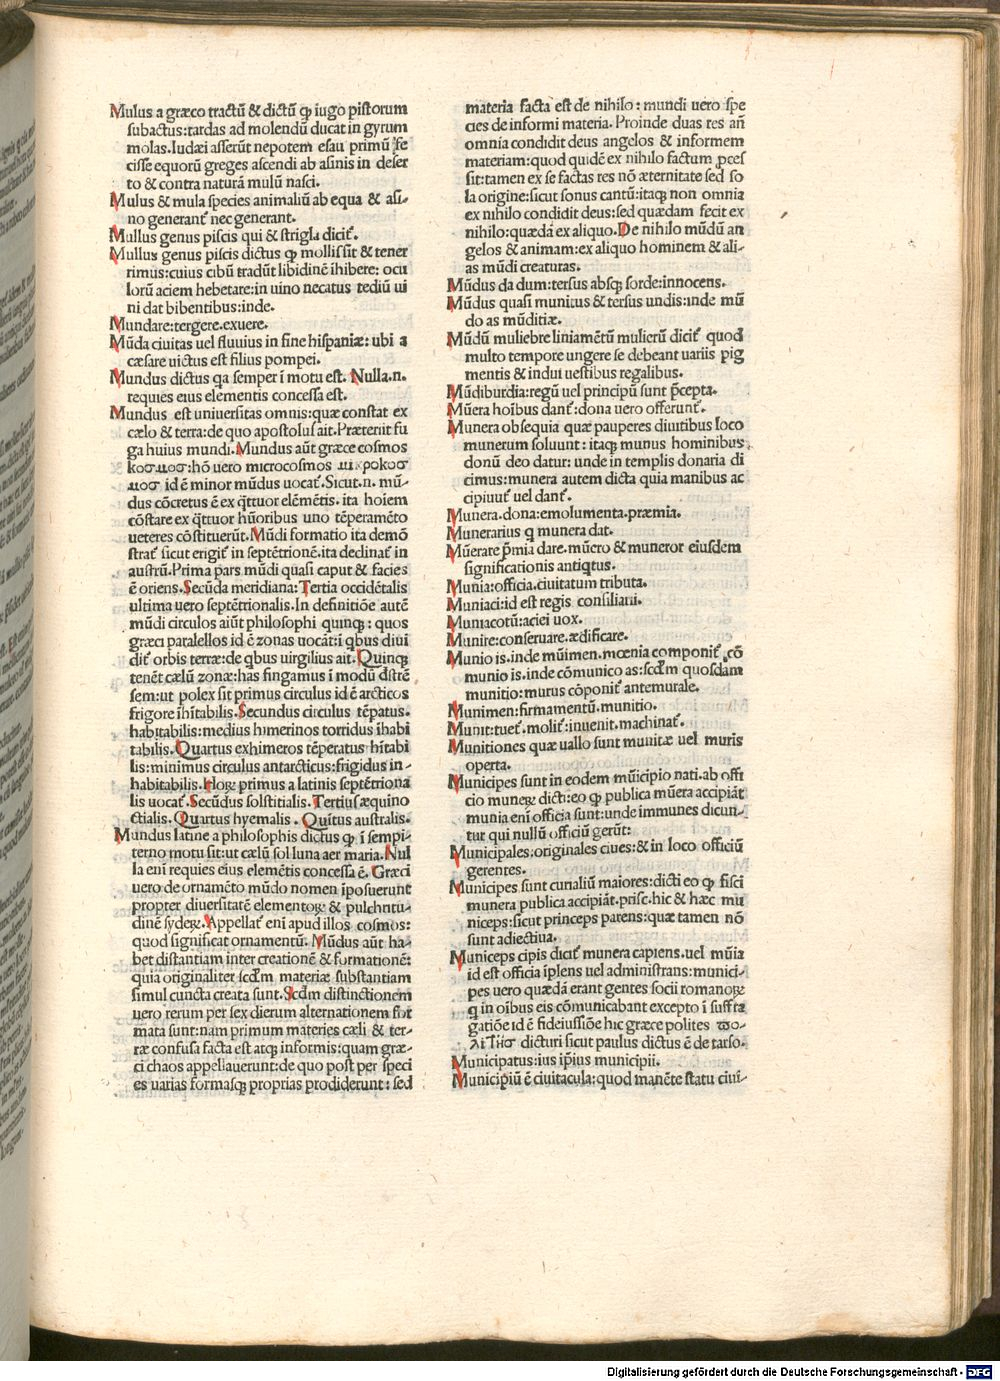 Mulus a græco tractũ & dictũ ꝙ iugo pistorum
subactus:tardas ad molendũ ducat in gyrum
molas.Iudæi asserũt nepotem esau primũ fe
cisse equorũ greges ascendi ab asinis in deser
to & contra naturã mulũ nasci.
Mulus & mula species animaliũ ab equa & asi-
no generant᷑ nec generant.
Mullus genus piscis qui & strigla dicit᷑.
Mullus genus piscis dictus ꝙ mollis sit & tener
rimus:cuius cibũ tradũt libidinẽ ĩhibere: ocu
lorũ aciem hebetare:in uino necatus tediũ ui
ni dat bibentibus:inde.
Mundare:tergere.exuere.
Mũda ciuitas uel fluuius in fine hispaniæ: ubi a
cæsare uictus est filius pompei.
Mundus dictus qa semper ĩ motu est. Nulla.n.
requies eius elementis concessa est.
Mundus est uniuersitas omnis:quæ constat ex
cælo & terra:de quo apostolus ait.Præteriit fu
ga huius mundi.Mundus aũt græce cosmos
κοσμοσ:hõ uero microcosmos μικροκοσ
μοσ id ẽ minor mũdus uocat᷑.Sicut.n. mũ-
dus cõcretus ẽ ex q̃ttuor elẽmẽtis. ita hoiem
cõstare ex q̃ttuor hũoribus uno tẽperamẽto
ueteres cõstituerũt.Mũdi formatio ita demõ
strat᷑ sicut erigit᷑ in septẽtrionẽ.ita declinat᷑ in
austrũ.Prima pars mũdi quasi caput & facies
ẽ oriens.Secũda meridiana: Tertia occidẽtalis
ultima uero septẽtrionalis.In definitiõe autẽ
mũdi circulos aiũt philosophi quinqꝫ: quos
græci paralellos id ẽ zonas uocãt:ĩ qbus diui
dit᷑ orbis terræ:de qbus uirgilius ait.Quinqꝫ
tenẽt cælũ zonæ:has fingamus ĩ modũ dextrẽ
sem:ut polex sit primus circulus id ẽ arcticos
frigore ĩhĩtabilis.Secundus circulus tẽpatus.
habitabilis:medius himerinos torridus ĩhabi
tabilis.Quartus exhimeros tẽperatus hĩtabi
lis:minimus circulus antarcticus:frigidus in-
habitabilis.Hoꝝ primus a latinis septẽtriona
lis uocat᷑.Secũdus solstitialis.Tertius æquino
ctialis.Quartus hyemalis.Quĩtus australis.
Mundus latine a philosophis dictus ꝙ ĩ sempi-
terno motu sit:ut cælũ sol luna aer maria.Nul
la enĩ requies eius elemẽtis concessa ẽ.Græci
uero de ornamẽto mũdo nomen ĩposuerunt
propter diuersitatẽ elementoꝝ & pulchritu-
dinẽ syderꝝ.Appellat᷑ enĩ apud illos cosmos:
quod significat ornamentũ. Mũdus aũt ha-
bet distantiam inter creationẽ & formationẽ:
quia originaliter scd̃m materiæ substantiam
simul cuncta creata sunt.Scd̃m distinctionem
uero rerum per sex dierum alternationem for
mata sunt:nam primum materies cæli & ter-
ræ confusa facta est atqꝫ informis:quam græ-
ci chaos appellauerunt:de quo post per speci
es uarias formasqꝫ proprias prodiderunt: sed
materia facta est de nihilo: mundi uero spe
cies de informi materia.Proinde duas res añ
omnia condidit deus angelos & informem
materiam:quod quidẽ ex nihilo factum ꝓces
sit:tamen ex se factas res nõ æternitate sed so
la origine:sicut sonus cantũ:itaqꝫ non omnia
ex nihilo condidit deus:sed quædam fecit ex
nihilo:quædã ex aliquo.De nihilo mũdũ an
gelos & animam:ex aliquo hominem & ali-
as mũdi creaturas.
Mũdus da dum:tersus absqꝫ sorde:innocens.
Mũdus quasi munitus & tersus undis:inde mũ
do as mũditiæ.
Mũdũ muliebre liniamẽtũ mulierũ dicit᷑ quod
multo tempore ungere se debeant uariis pig
mentis & indui uestibus regalibus.
Mũdiburdia:regũ uel principũ sunt p̃cepta.
Mũera hoĩbus dant᷑:dona uero offerunt᷑.
Munera obsequia quæ pauperes diuitibus loco
munerum soluunt: itaqꝫ munus hominibus
donũ deo datur: unde in templis donaria di
cimus:munera autem dicta quia manibus ac
cipiuut᷑ uel dant᷑.
Munera.dona:emolumenta.præmia.
Munerarius q munera dat.
Mũerare p̃mia dare.mũero & muneror eiusdem
significationis antiqtus.
Munia:officia.ciuitatum tributa.
Muniaci:id est regis consiliarii.
Muniacotũ:aciei uox.
Munire:conseruare.ædificare.
Munio is.inde mũimen.mœnia componit᷑.cõ
munio is.inde cõmunico as:scd̃m quosdam
munitio:murus cõponit᷑ antemurale.
Munimen:firmamentũ.munitio.
Munit:tuet᷑.molit᷑:inuenit.machinat᷑.
Munitiones quæ uallo sunt munitæ uel muris
operta.
Municipes sunt in eodem mũicipio nati.ab offi
cio muneꝝ dicti:eo ꝙ publica mũera accipiãt
munia enĩ officia sunt:unde immunes dicun-
tur qui nullũ officiũ gerũt:
Municipales:originales ciues:& in loco officiũ
gerentes.
Municipes sunt curialiũ maiores:dicti eo ꝙ fisci
munera publica accipiãt.prisc.hic & hæc mu
niceps:sicut princeps parens:quæ tamen nõ
sunt adiectiua.
Municeps cipis dicit᷑ munera capiens.uel mũia
id est officia ĩplens uel administrans:munici-
pes uero quædã erant gentes socii romanoꝝ
q in oĩbus eis cõmunicabant excepto ĩ suffra
gatiõe id ẽ fideiussiõe hic græce polites πο-
λιτησ dicturi sicut paulus dictus ẽ de tarso.
Municipatus:ius ip̃ius municipii.
Municipiũ ẽ ciuitacula:quod manẽte statu ciui-
Digitalisierung gefördert durch die Deutsche Forschungsgemeinschaft - DFG